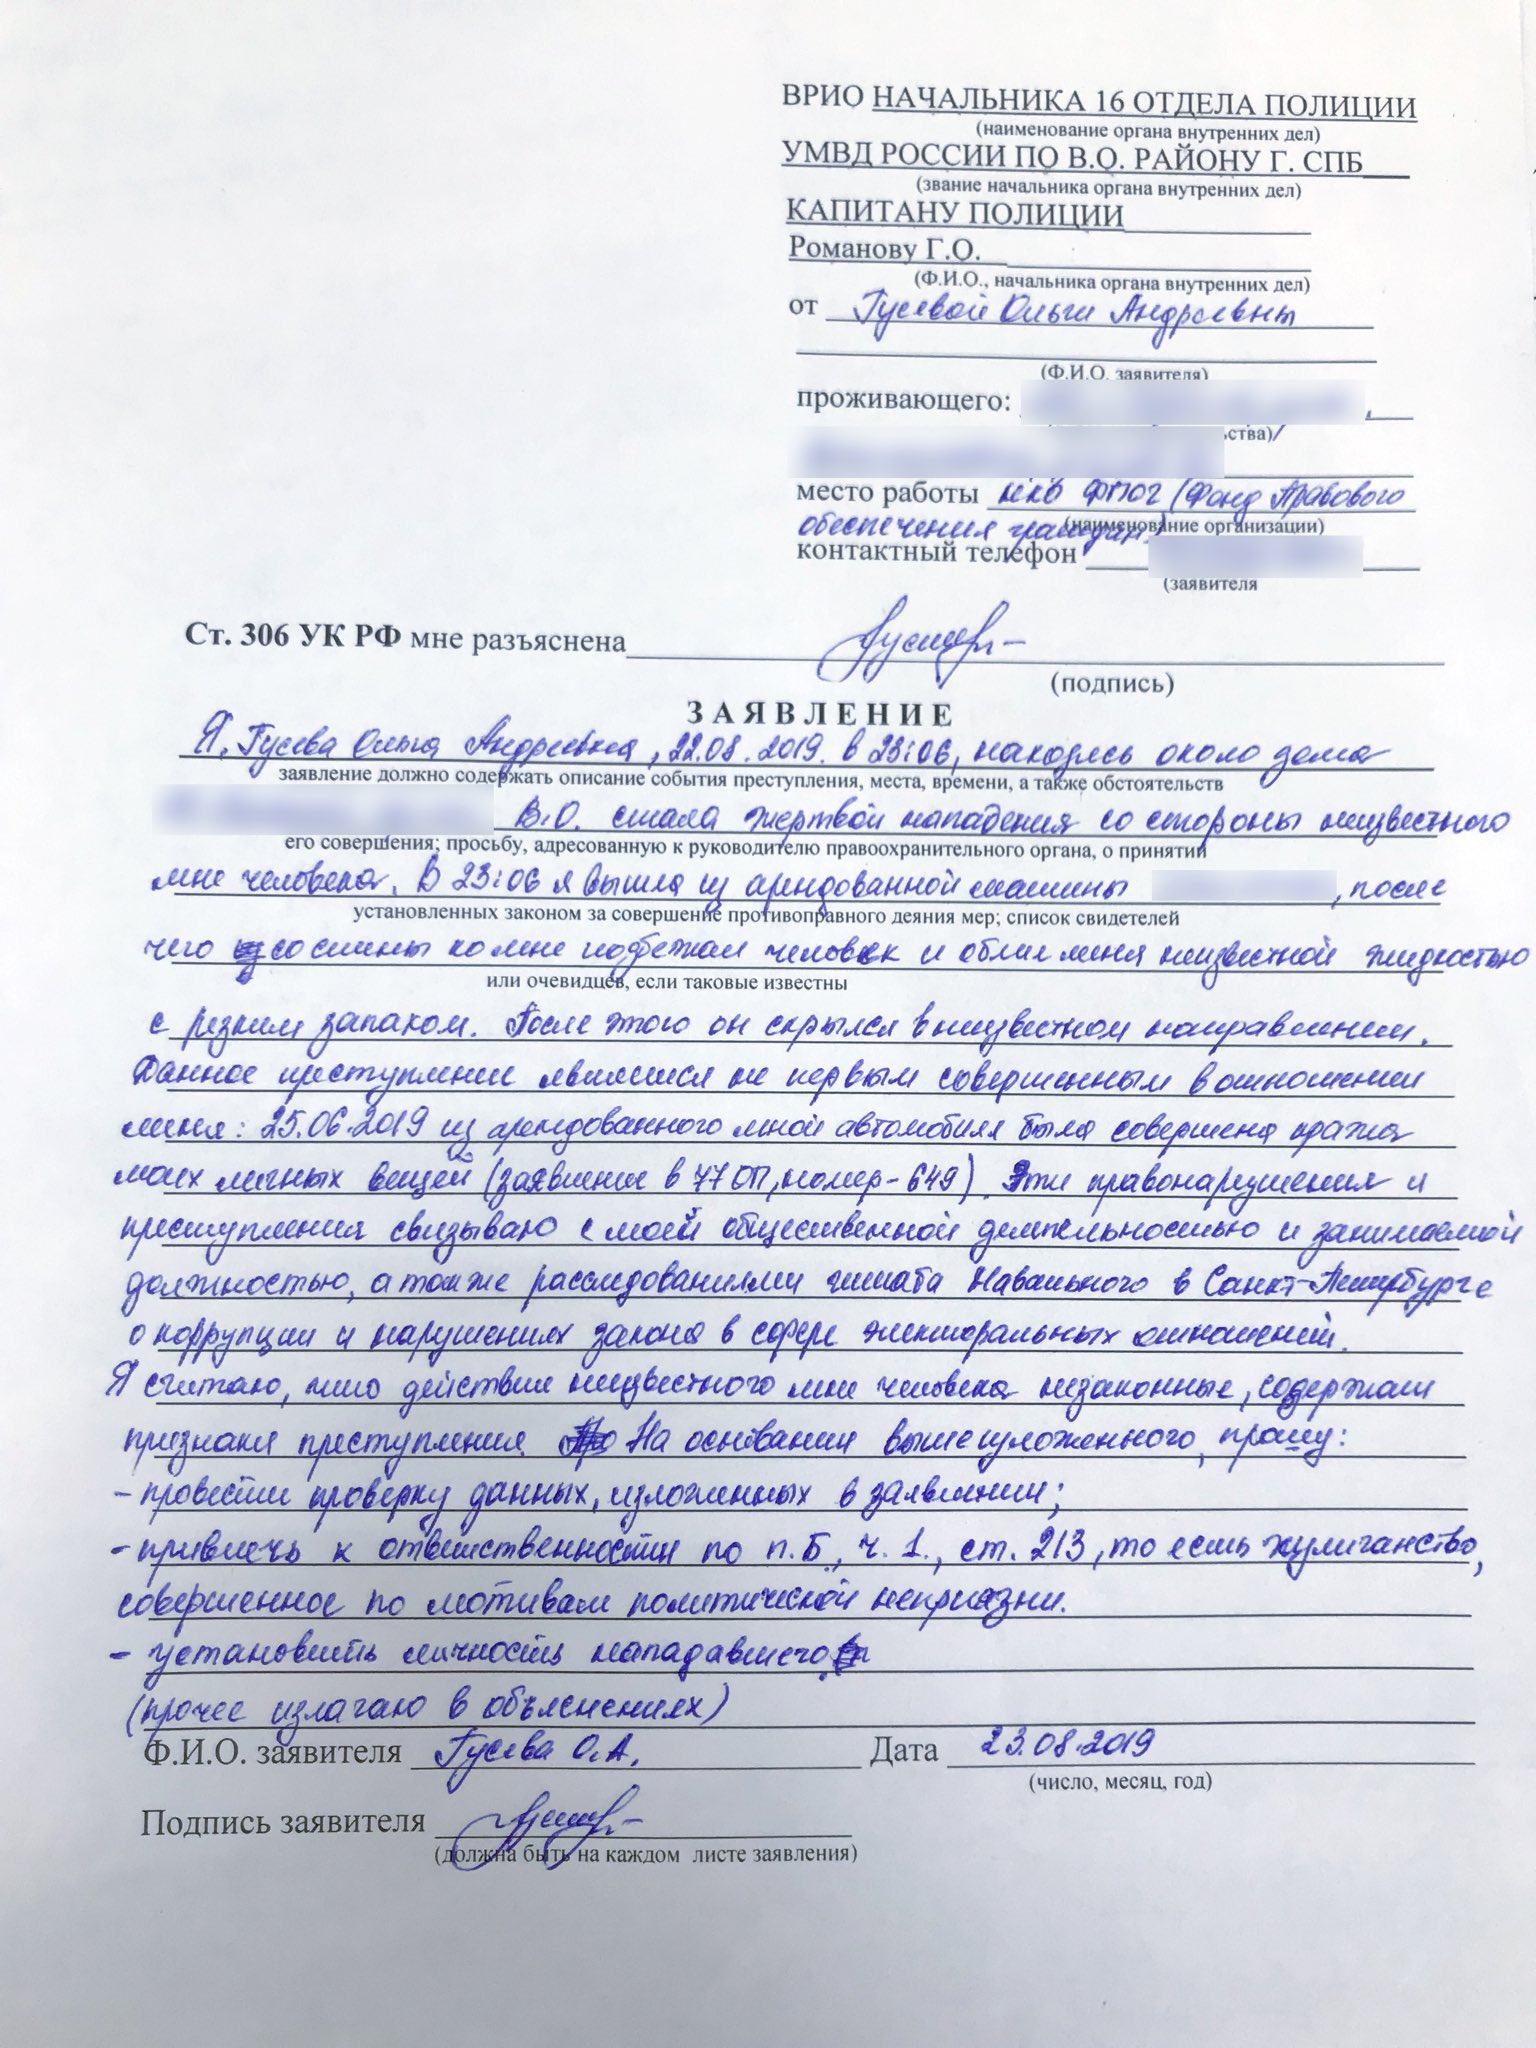 ВРИО НАЧАЛЬНИКА 16 ОТДЕЛА ПОЛИЦИИ
(наименование органа внутренних дел)
УМВД РОССИИ ПО В.О. РАЙОНУ Г. СПБ
(звание начальника органа внутренних дел)
КАПИТАНУ ПОЛИЦИИ
Романову Г.О.
(Ф.И.О., начальника органа внутренних дел)
от Гусевой Ольги Андреевны
(Ф.И.О. заявителя)
проживающего:
ьства)
место работы НКО ФПОГ (Фонд Правового
(наименование организации)
обеспечения граждан)
контактный телефон
(заявителя
Ст. 306 УК РФ мне разъяснена
(подпись)
ЗАЯВЛЕНИЕ
Я, Гусева Ольга Андреевна, 22.08.2019. в 23:06, находясь около дома
заявление должно содержать описание события преступления, места, времени, а также обстоятельств
В.О. стала жертвой нападения со стороны неизвестного
его совершения; просьбу, адресованную к руководителю правоохранительного органа, о принятии
мне человека. В 23:06 я вышла из арендованной машины , после
установленных законом за совершение противоправного деяния мер; список свидетелей
чего со спины ко мне подбежал человек и облил меня неизвестной жидкостью
или очевидцев, если таковые известны
с резким запахом. После этого он скрылся в неизвестном направлении.
Данное преступление является не первым совершенным в отношении
меня: 25.06.2019 из арендованного мной автомобиля была совершена кража
моих личных вещей (заявление в 77 ОП, номер - 649). Эти правонарушения и
преступления связываю с моей общественной деятельностью и занимаемой
должностью, а также расследованиями штаба Навального в Санкт-Петербурге
о коррупции и нарушениях закона в сфере электоральных отношений.
Я считаю, что действия неизвестного мне человека незаконные, содержат
признаки преступления. На основании вышеизложенного, прошу:
- провести проверку данных, изложенных в заявлении;
- привлечь к ответственности по п. Б, ч. 1., ст. 213, то есть хулиганство,
совершенное по мотивам политической неприязни.
- установить личность нападавшего.
(прочее излагаю в объяснениях)
Ф.И.О. заявителя Гусева О.А. Дата 23.08.2019
(число, месяц, год)
Подпись заявителя
(должна быть на каждом листе заявления)